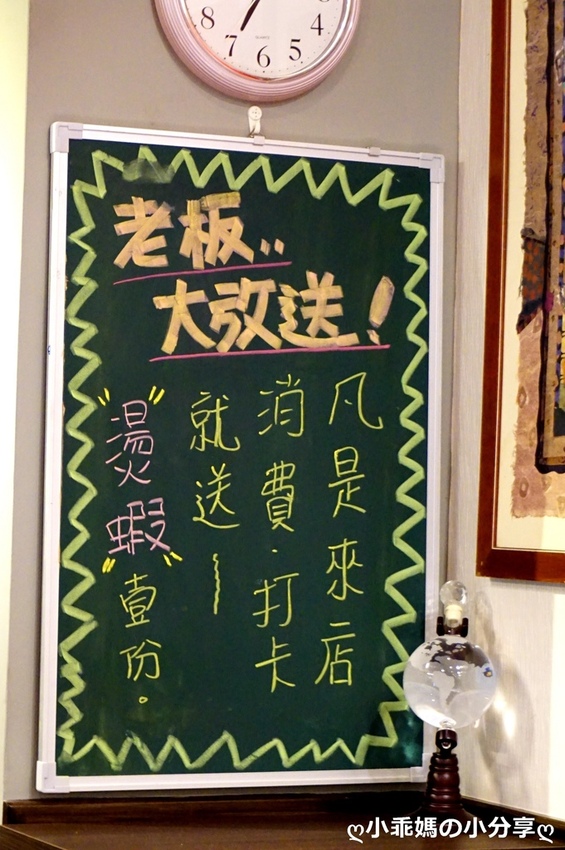 8 7 6 5 4
QUARTZ
老板..
大改送!
凡是來店
消費.打卡
就送~
"燙蝦"壹份。
ღ小乖媽の小分享ღ